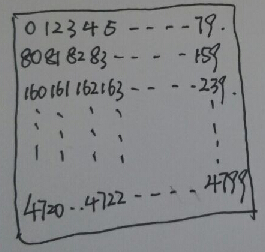 0 1 2 3 4 5 - - - - 79.
80 81 82 83 - - - - 159
160 161 162 163 - - - - 239.
4720 .. 4722 - - - - 4799